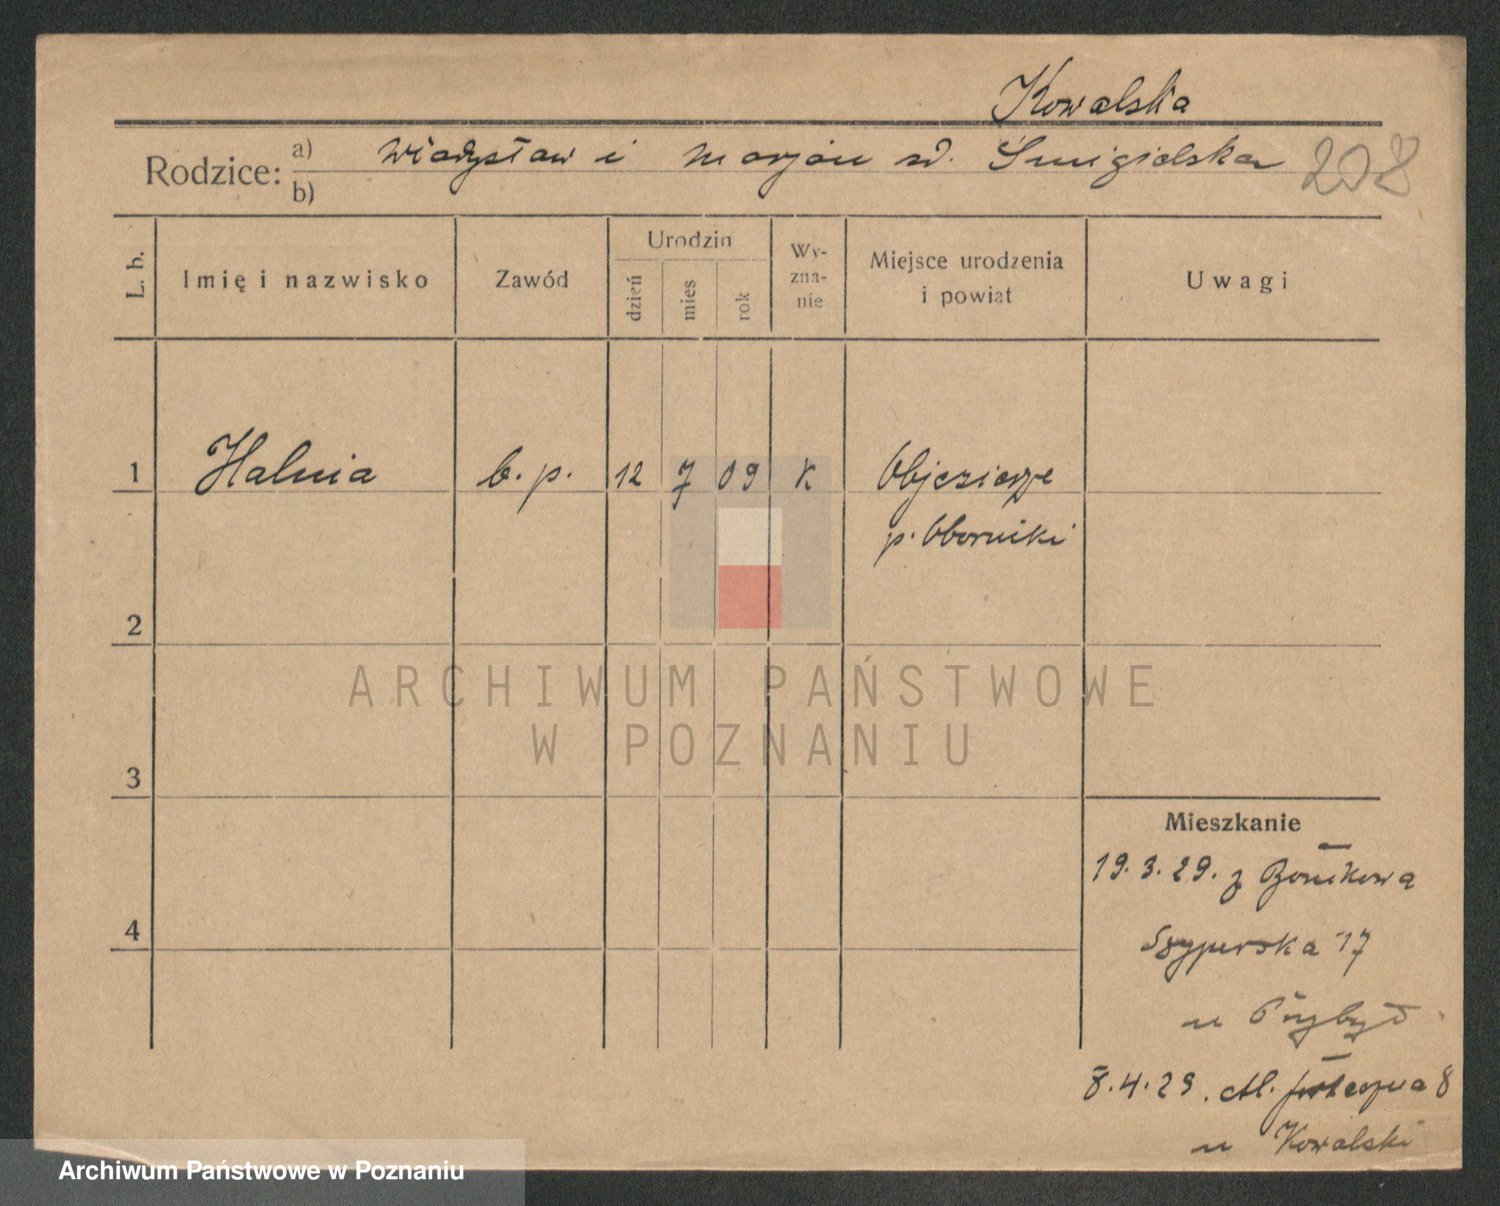 Kowalska
Rodzice: a) Władysław i Marjan zd. Śmigielska 208
b)
L. b. Imię i nazwisko Zawód Urodzin dzień mies rok Wy-zna-nie Miejsce urodzenia i powiat Uwagi
1 Halnia b. p. 12 7 09 K Objezierze
p. Oborniki
2
ARCHIWUM PAŃSTWOWE
W POZNANIU
3
Mieszkanie
19.3.29. z Bonikowa
4
Szyperska 17
u Przybył
8.4.29. Al. 8
u Kowalski
Archiwum Państwowe w Poznaniu